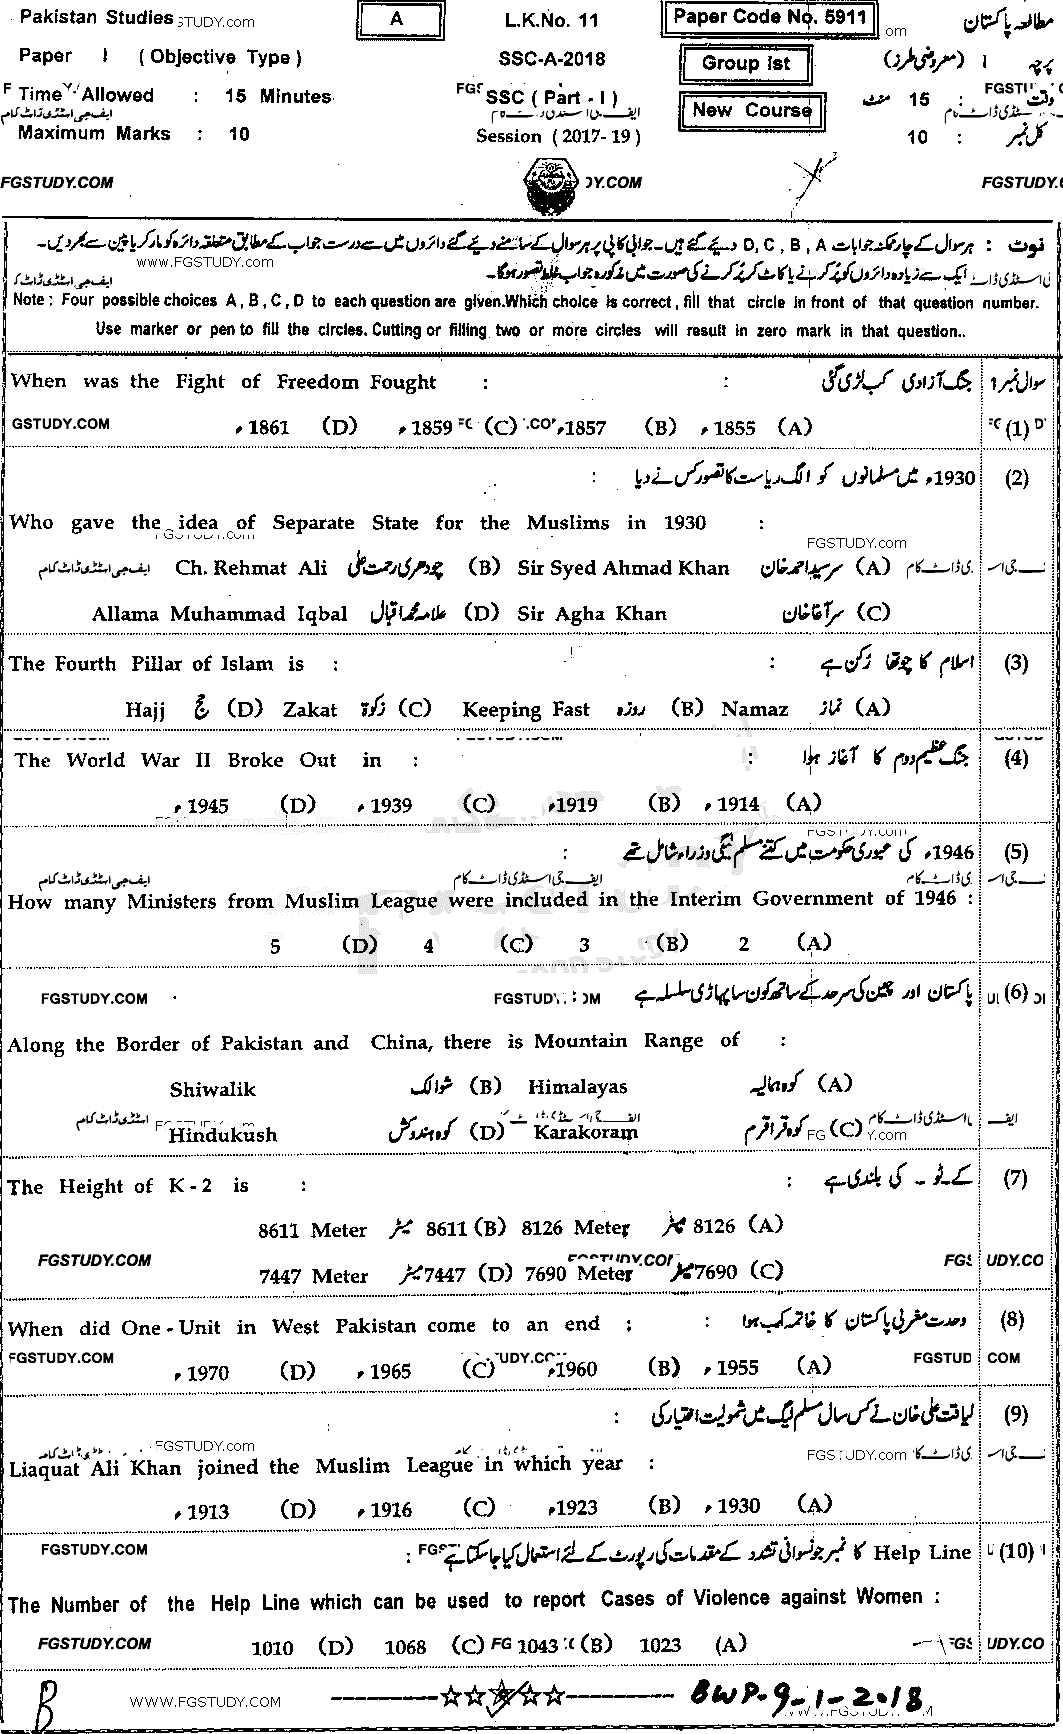 Pakistan Studies STUDY.com A L.K.No. 11 Paper Code No. 5911 om مطالعہ پاکستان
Paper I ( Objective Type ) SSC-A-2018 Group Ist پرچہ I (معروضی طرز)
Time Allowed : 15 Minutes SSC ( Part - I ) وقت : 15 منٹ
ایف جی اسٹڈی ڈاٹ کام New Course
Maximum Marks : 10 Session (2017-19) کل نمبر : 10
FGSTUDY.COM Y.COM FGSTUDY.C
نوٹ : ہر سوال کے چار ممکنہ جوابات D, C, B, A دیے گئے ہیں۔ جوابی کاپی پر ہر سوال کے سامنے دیے گئے دائروں میں سے درست جواب کے مطابق متعلقہ دائرہ کو مارکر یا پین سے بھر دیں۔
www.FGSTUDY.com
ایک سے زیادہ دائروں کو پُر کرنے یا کاٹ کر پُر کرنے کی صورت میں مذکورہ جواب غلط تصور ہوگا۔
Note : Four possible choices A, B, C, D to each question are given.Which choice is correct, fill that circle in front of that question number.
Use marker or pen to fill the circles. Cutting or filling two or more circles will result in zero mark in that question..
When was the Fight of Freedom Fought : : جنگ آزادی کب لڑی گئی سوال نمبر 1
GSTUDY.COM 1861ء (D) 1859ء (C) 1857ء (B) 1855ء (A) (1)
1930ء میں مسلمانوں کو الگ ریاست کا تصور کس نے دیا : (2)
Who gave the idea of Separate State for the Muslims in 1930 :
FGSTUDY.com
ایف جی اسٹڈی ڈاٹ کام Ch. Rehmat Ali چودھری رحمت علی (B) Sir Syed Ahmad Khan سرسید احمد خان (A)
Allama Muhammad Iqbal علامہ محمد اقبال (D) Sir Agha Khan سر آغا خان (C)
The Fourth Pillar of Islam is : : اسلام کا چوتھا رُکن ہے (3)
Hajj حج (D) Zakat زکوٰۃ (C) Keeping Fast روزہ (B) Namaz نماز (A)
The World War II Broke Out in : : جنگ عظیم دوم کا آغاز ہوا (4)
1945ء (D) 1939ء (C) 1919ء (B) 1914ء (A)
1946ء کی عبوری حکومت میں کتنے مسلم لیگی وزراء شامل تھے : (5)
ایف جی اسٹڈی ڈاٹ کام ایف جی اسٹڈی ڈاٹ کام
How many Ministers from Muslim League were included in the Interim Government of 1946 :
5 (D) 4 (C) 3 (B) 2 (A)
FGSTUDY.COM پاکستان اور چین کی سرحد کے ساتھ کون سا پہاڑی سلسلہ ہے (6)
Along the Border of Pakistan and China, there is Mountain Range of :
Shiwalik شوالک (B) Himalayas کوہ ہمالیہ (A)
Hindukush کوہ ہندوکش (D) Karakoram کوہ قراقرم (C)
The Height of K-2 is : : کے۔ٹو۔ کی بلندی ہے (7)
8611 Meter میٹر 8611 (B) 8126 Meter میٹر 8126 (A)
FGSTUDY.COM
7447 Meter میٹر 7447 (D) 7690 Meter میٹر 7690 (C)
When did One-Unit in West Pakistan come to an end : : وحدت مغربی پاکستان کا خاتمہ کب ہوا (8)
FGSTUDY.COM 1970ء (D) 1965ء (C) 1960ء (B) 1955ء (A)
لیاقت علی خان نے کس سال مسلم لیگ میں شمولیت اختیار کی : (9)
FGSTUDY.com
Liaquat Ali Khan joined the Muslim League in which year :
1913ء (D) 1916ء (C) 1923ء (B) 1930ء (A)
FGSTUDY.COM Help Line کا نمبر جو نسوانی تشدد کے مقدمات کی رپورٹ کے لئے استعمال کیا جا سکتا ہے : (10)
The Number of the Help Line which can be used to report Cases of Violence against Women :
FGSTUDY.COM 1010 (D) 1068 (C) 1043 (B) 1023 (A)
B WWW.FGSTUDY.COM BWP-9-1-2018